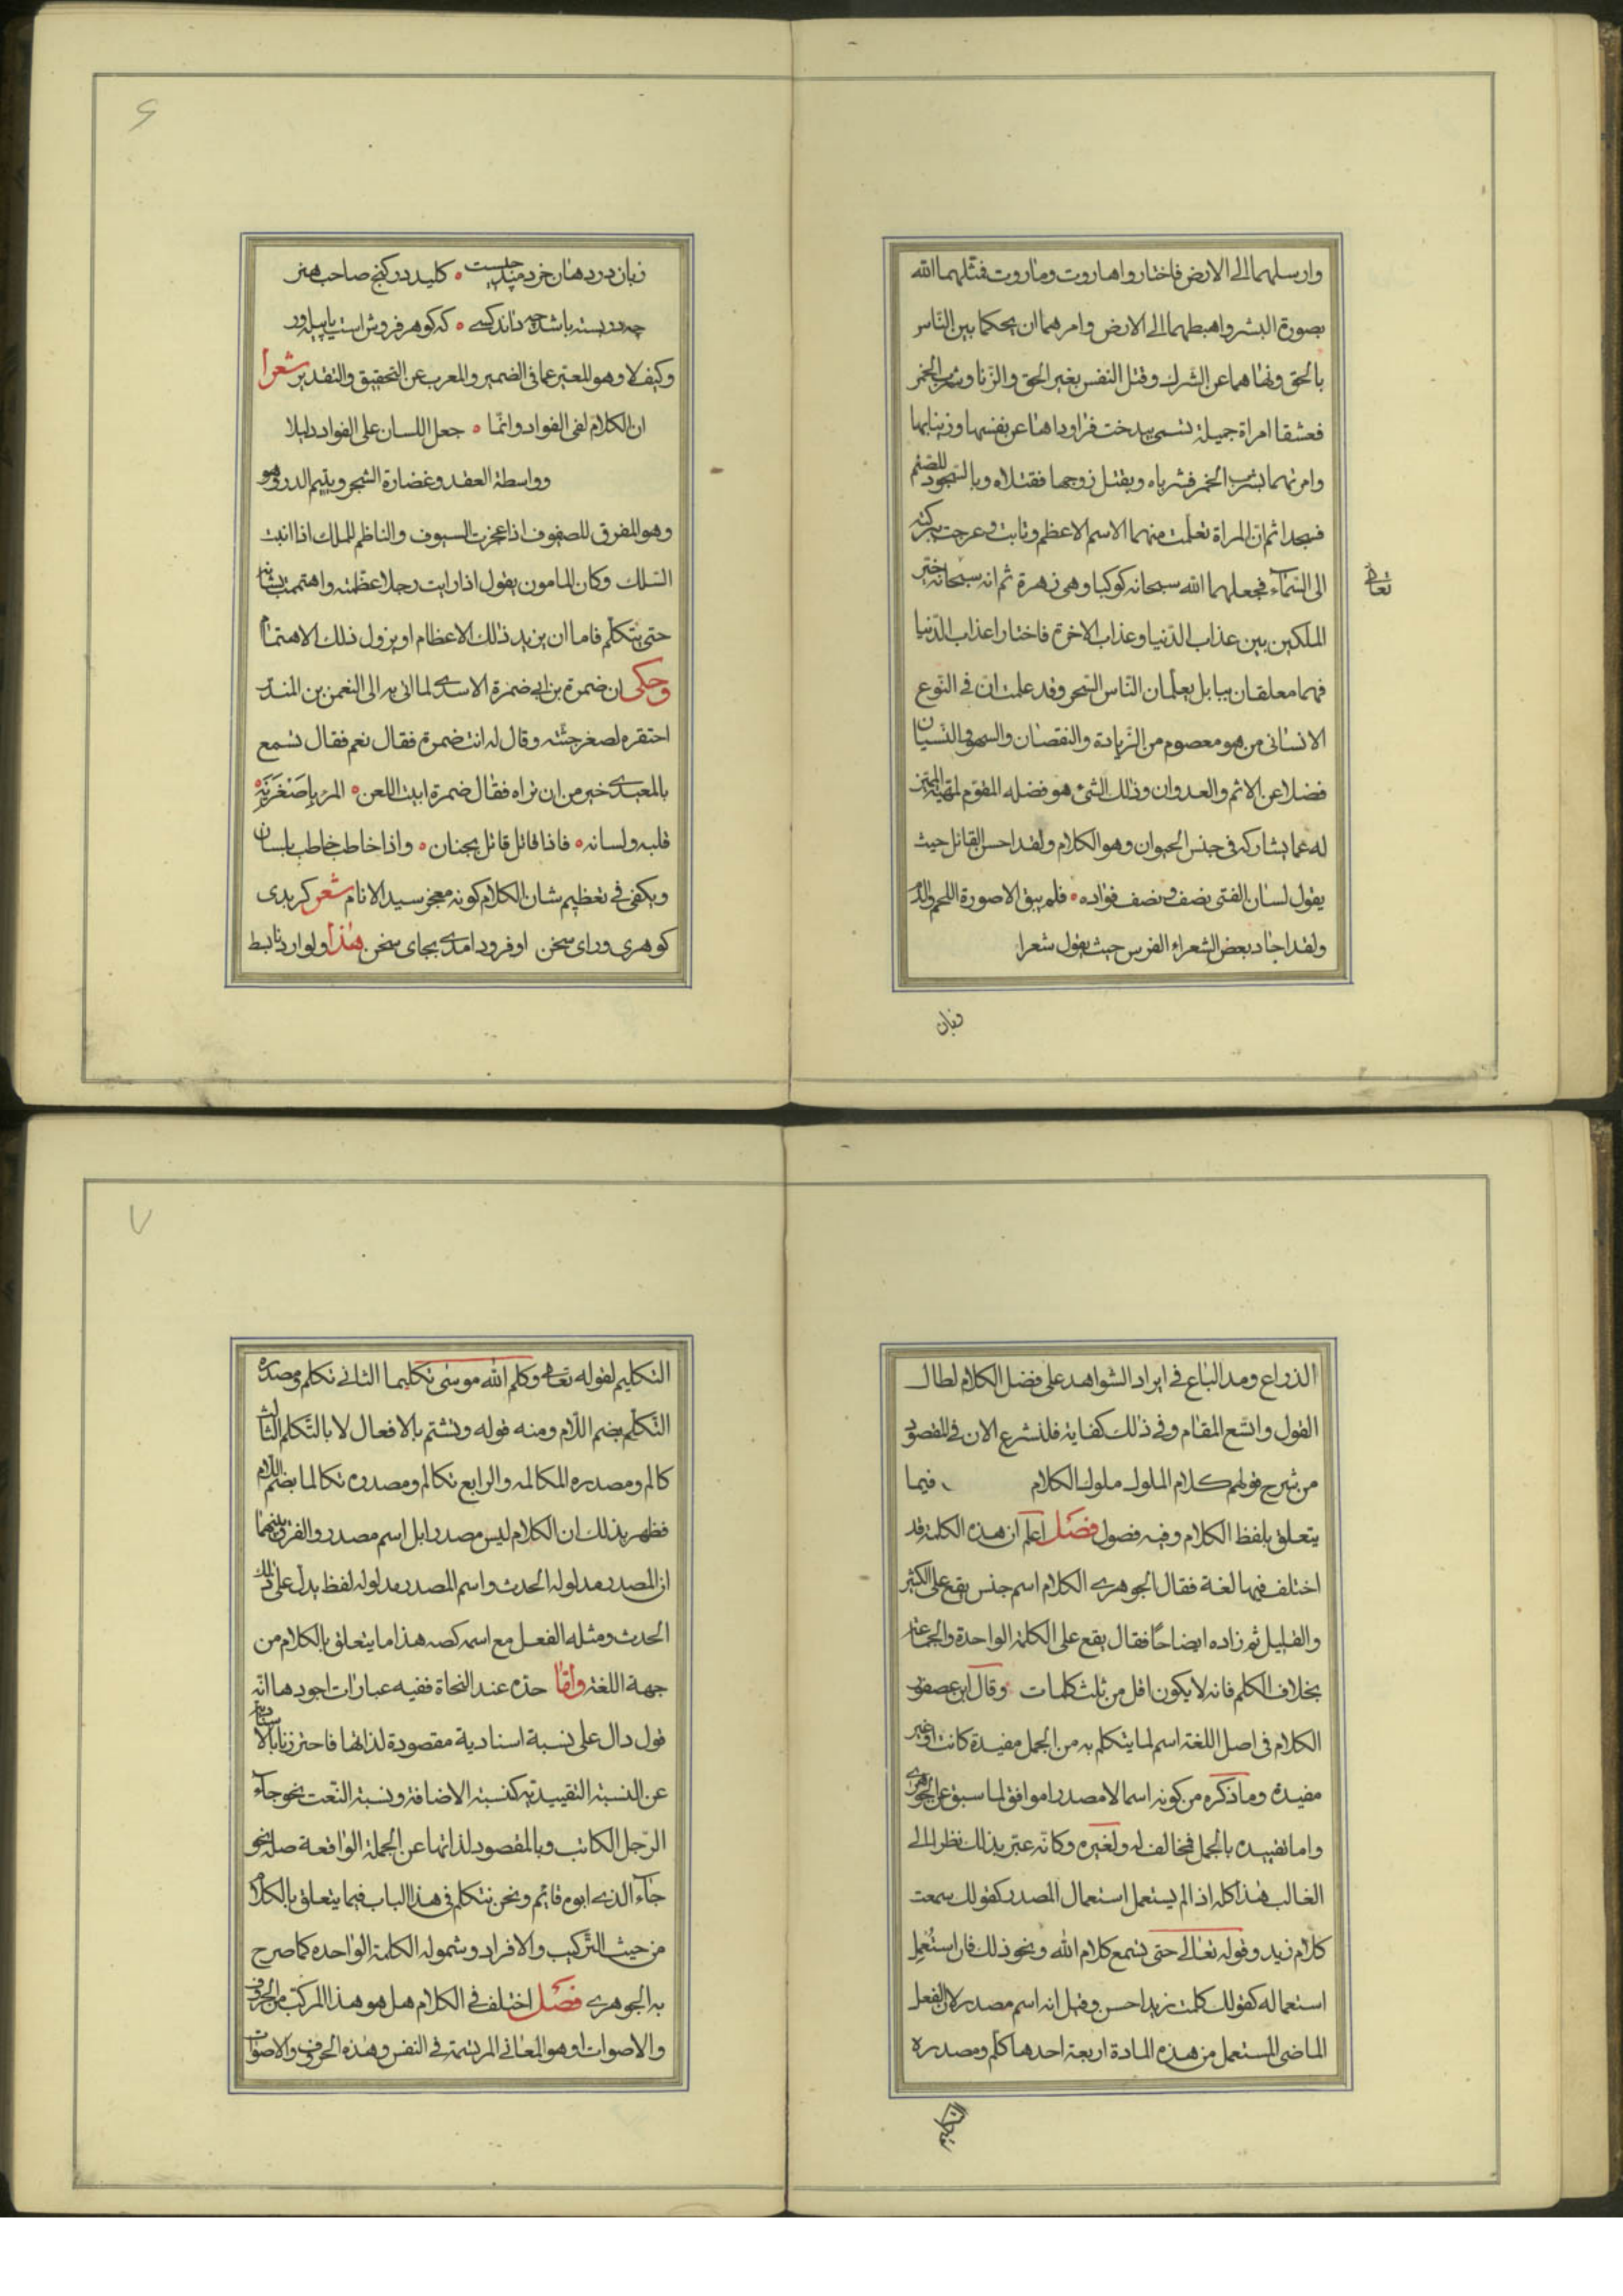 وارسلهما الى الارض فاختاروا هاروت وماروت فمثلهما الله
بصورة البشر واهبطهما الى الارض وامرهما ان يحكما بين الناس
بالحق ونهاهما عن الشرك وقتل النفس بغير الحق والزنا وشرب الخمر
فعشقا امراة جميلة تسمى بيدخت فراوداها عن نفسها وزينا بها
وامرتهما بشرب الخمر فشرباه وبقتل زوجها فقتلاه وبالسجود للصنم
فسجدا ثم ان المراة تعلمت منهما الاسم الاعظم وتابت وعرجت ببركته
الى السماء فجعلهما الله سبحانه كوكبا وهى زهرة ثم انه سبحانه خير
تعالى
الملكين بين عذاب الدنيا وعذاب الاخرة فاختارا عذاب الدنيا
فهما معلقان ببابل يعلمان الناس السحر وقد علمت ان فى النوع
الانسانى من هو معصوم من الزيادة والنقصان والسهو والنسيان
فضلا عن الاثم والعدوان وذلك الشئ هو فضله المقوم لمهيته المميز
له عما يشاركه فى جنس الحيوان وهو الكلام ولقد احسن القائل حيث
يقول لسان الفتى نصف ونصف فؤاده ه فلم يبق الا صورة اللحم والدم
ولقد اجاد بعض الشعراء الفرس حيث يقول شعرا
زبان
۶
زبان در دهان خردمند چیست ه کلید در کنج صاحب هنر
چه در بسته باشد چه داند کسی ه که کوهر فروش است یا پیله ور
وكيف لا وهو المعبر عما فى الضمير والمعرب عن التحقيق والتقدير شعرا
ان الكلام لفى الفواد وانما ه جعل اللسان على الفواد دليلا
وواسطة العقد وغضارة الشجر ويتيم الدر وهو
وهو المفرق للصفوف اذا عجزت السيوف والناظم للملك اذا انبت
السلك وكان المامون يقول اذا رايت رجلا عظمته واهتممت بشانه
حتى يتكلم فاما ان يزيد ذلك الاعظام او يزول ذلك الاهتمام
وحكى ان ضمرة بن ابى ضمرة الاسدى لما اتى به الى النعمن بن المنذر
احتقره لصغر جثته وقال له انت ضمرة فقال نعم فقال تسمع
بالمعيدى خير من ان تراه فقال ضمرة ابيت اللعن ه المرء باصغريه ه
قلبه ولسانه ه فاذا قاتل قاتل بجنان ه واذا خاطب خاطب بلسان
ويكفى فى تعظيم شان الكلام كونه معجز سيد الانام شعر كر بدى
كوهرى وراى سخن اوفرود امدى بجاى سخن هذا ولو اردنا بسط
الذراع ومد الباع فى ايراد الشواهد على فضل الكلام لطال
القول واتسع المقام وفى ذلك كفاية فلنشرع الان فى المقصود
من شرح قولهم كلام الملوك ملوك الكلام فيما
يتعلق بلفظ الكلام وفيه فصول فصل اعلم ان هذه الكلمة قد
اختلف فيها لغة فقال الجوهرى الكلام اسم جنس يقع على الكثير
والقليل ثم زاده ايضاحا فقال يقع على الكلمة الواحدة والجماعة
بخلاف الكلم فانه لا يكون اقل من ثلث كلمات وقال ابن عصفور
الكلام فى اصل اللغة اسم لما يتكلم به من الجمل مفيدة كانت او غير
مفيده وما ذكره من كونه اسما لا مصدرا موافق لما سبق عن الجوهرى
واما تقييده بالجمل فمخالف له ولغيره وكانه عبر بذلك نظرا الى
الغالب هذا كله اذا لم يستعمل استعمال المصدر كقولك سمعت
كلام زيد وقوله تعالى حتى يسمع كلام الله ونحو ذلك فان استعمل
استعماله كقولك كلمت زيدا حسن وقيل انه اسم مصدر لان الفعل
الماضى المستعمل من هذه المادة اربعة احدها كلم ومصدره
التكليم
۷
التكليم لقوله تعالى وكلم الله موسى تكليما الثانى تكلم ومصدره
التكلم بضم اللام ومنه قوله وتشتم بالافعال لا بالتكلم الثالث
كالم ومصدره المكالمه والرابع تكالم ومصدره تكالما بضم اللام
فظهر بذلك ان الكلام ليس مصدرا بل اسم مصدر والفرق بينهما
ان المصدر مدلوله الحدث واسم المصدر مدلوله لفظ يدل على ذلك
الحدث ومثله الفعل مع اسمه كصه هذا ما يتعلق بالكلام من
جهة اللغة واما حده عند النحاة ففيه عبارات اجودها انه
قول دال على نسبة اسنادية مقصودة لذاتها فاحترزنا بالاسنادية
عن النسبة التقييدية كنسبة الاضافة ونسبة النعت نحو جاء
الرجل الكاتب وبالمقصود لذاتها عن الجملة الواقعة صلة نحو
جاء الذى ابوه قائم ونحن نتكلم فى هذا الباب فيما يتعلق بالكلام
من حيث التركيب والافراد وشموله الكلمة الواحده كما صرح
به الجوهرى فصل اختلف فى الكلام هل هو هذا المركب من الحروف
والاصوات او هو المعانى المرتسمة فى النفس وهذه الحروف والاصوات